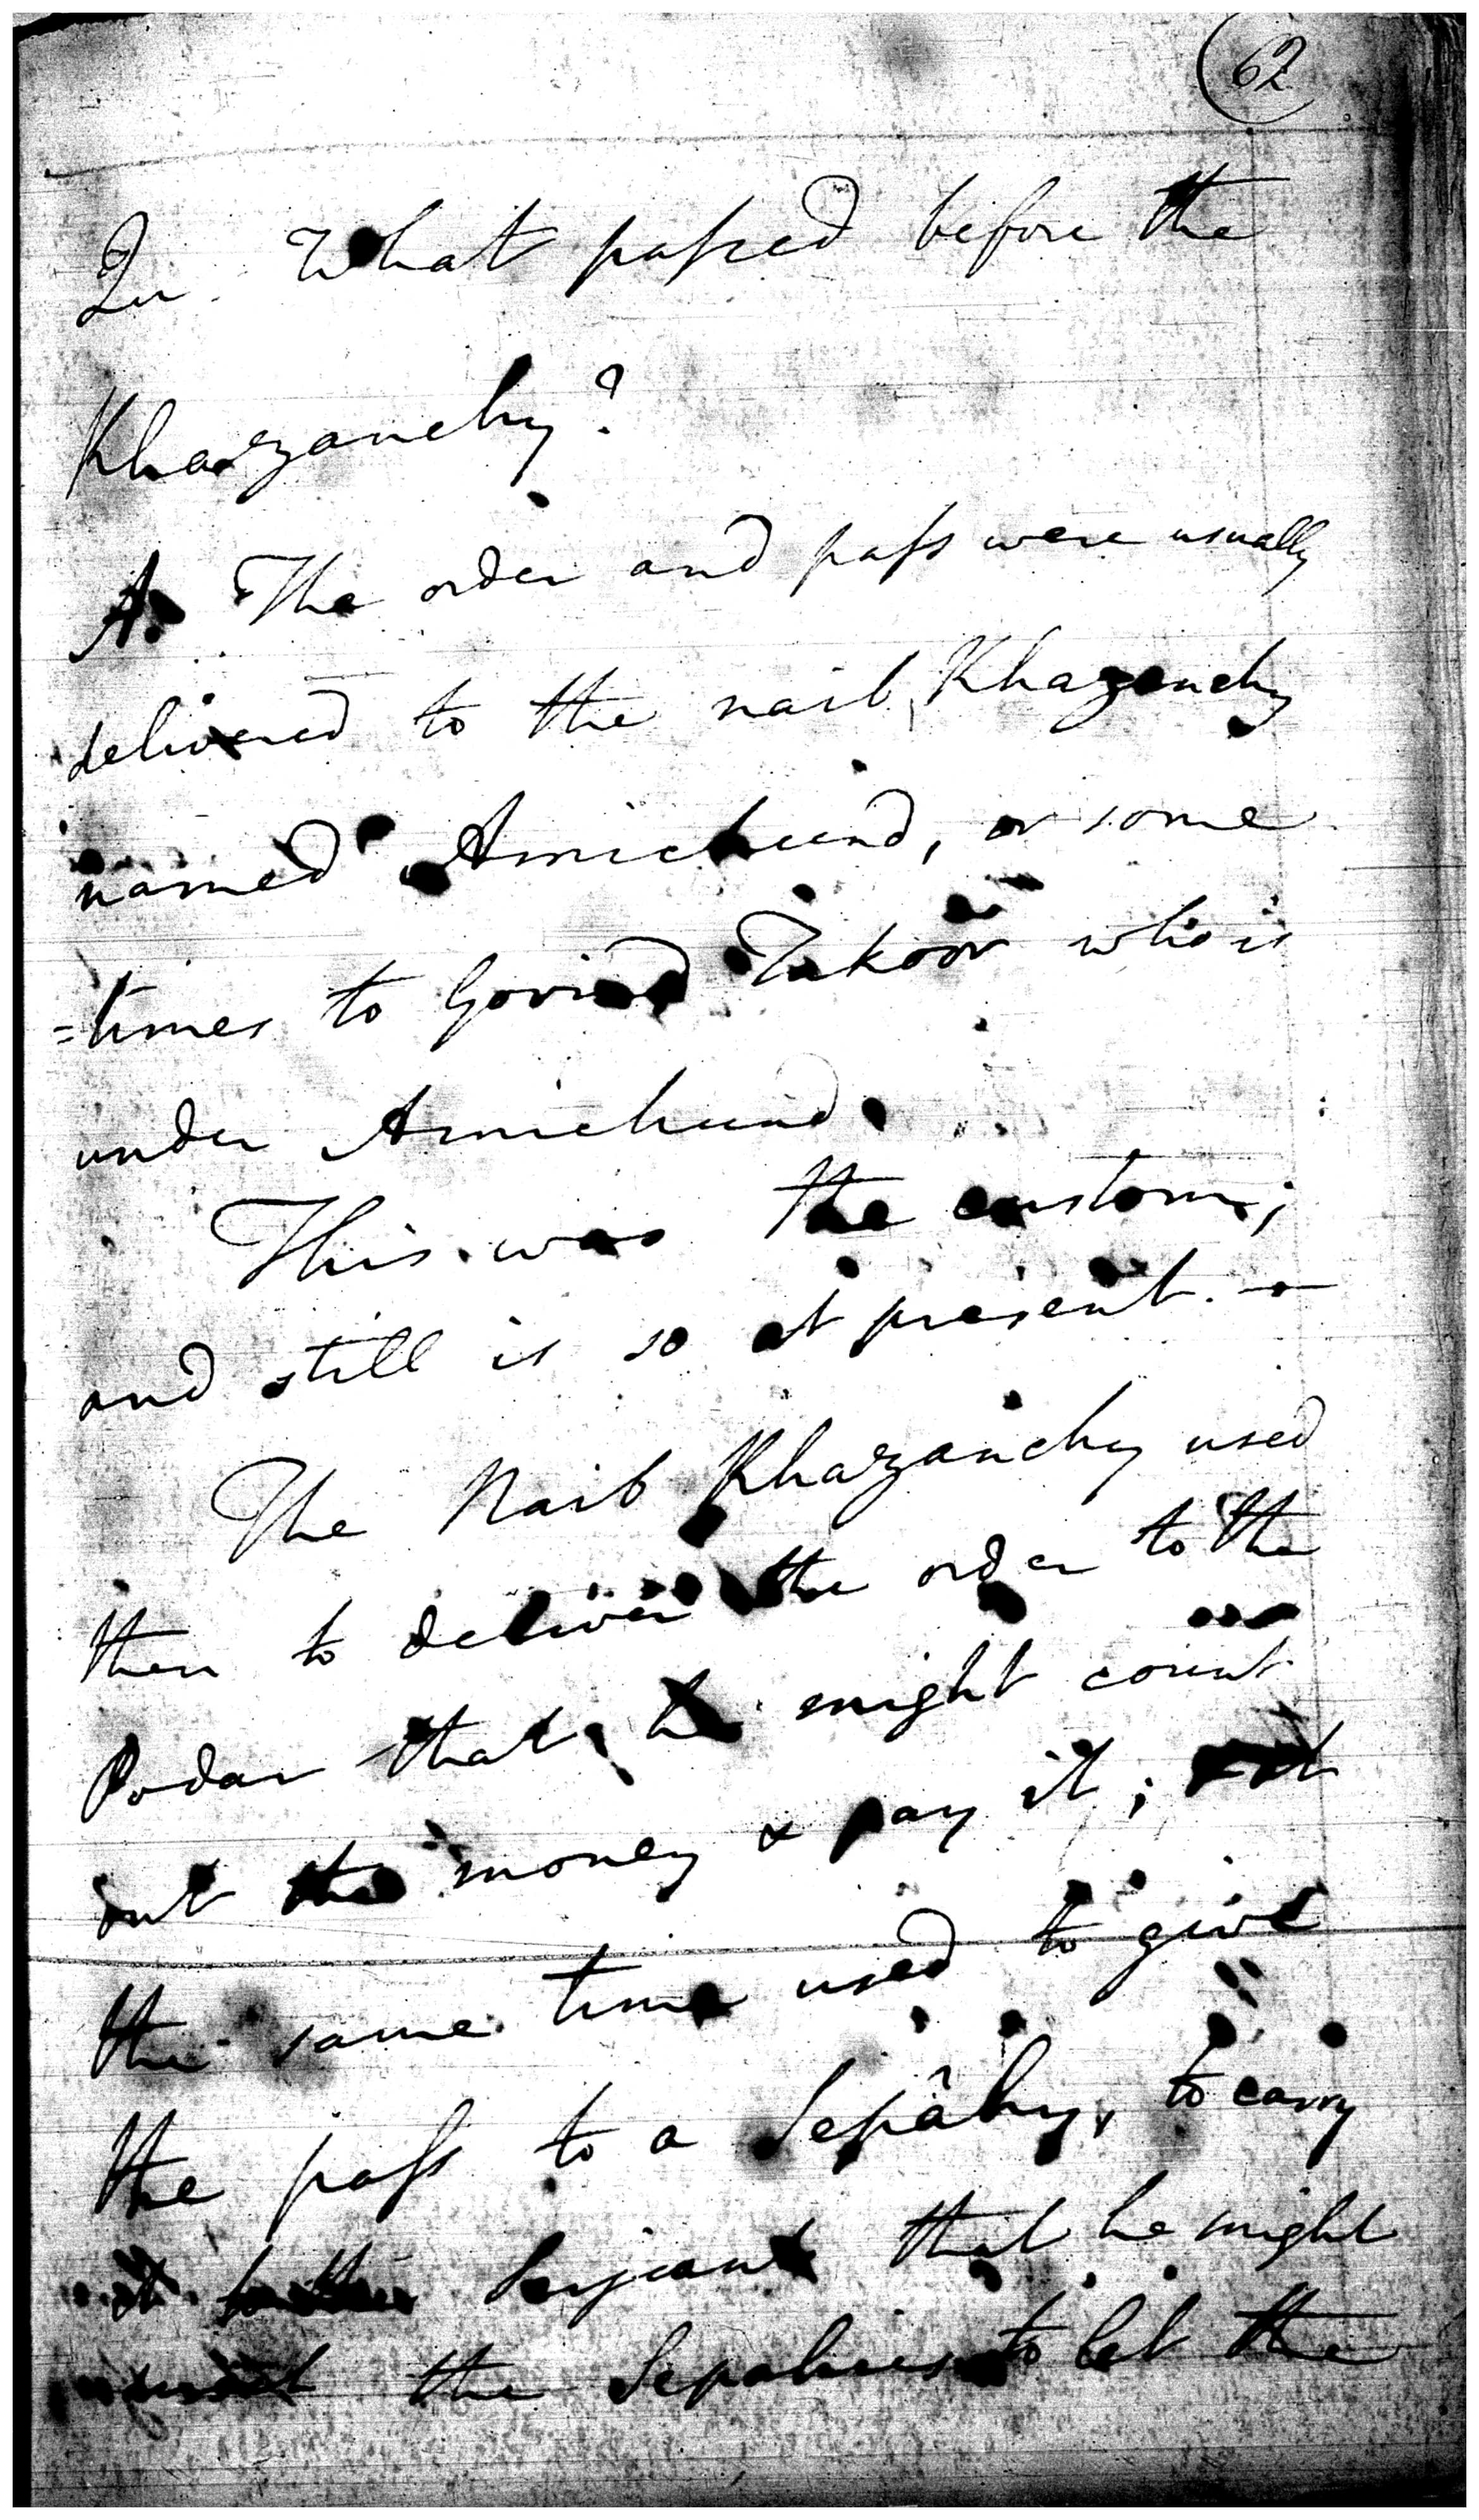 62
Qu. What passed before the
Khazanchy?
A. The order and pass were usually
delivered to the naib Khazanchy
named Amichund, or some
=times to Govind Takoor who is
under Amichund.
This was the custom;
and still is so at present. —
The Naib Khazanchy used
then to deliver the order to the
Podar that he might count
out the money & pay it; at
the same time used to give
the pass to a Sepâhy, to carry
it to the Serjeant that he might
the Sepahies to let the